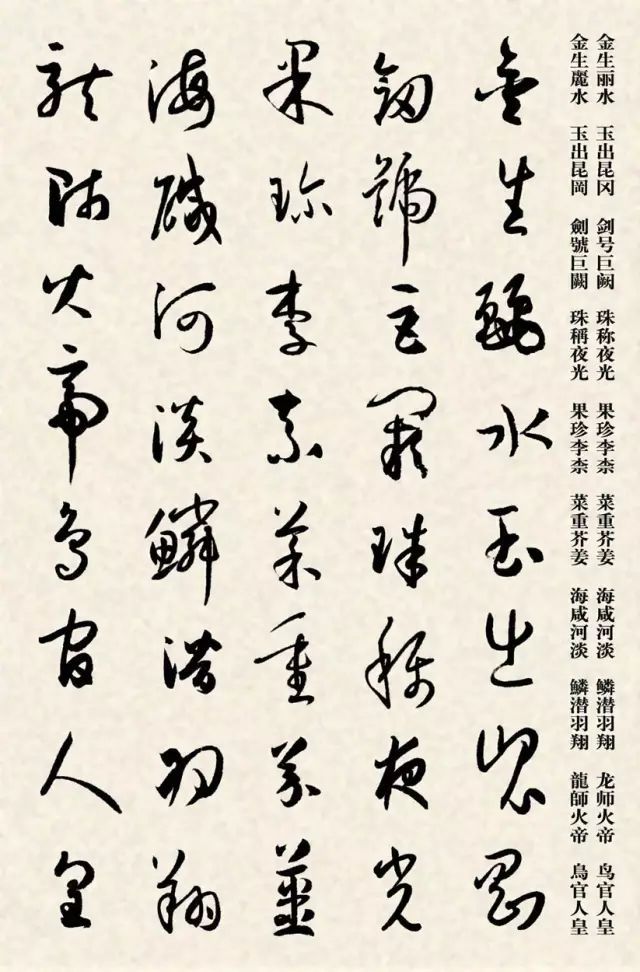 金生丽水 玉出昆冈 剑号巨阙 珠称夜光 果珍李柰 菜重芥姜 海咸河淡 鳞潜羽翔 龙师火帝 鸟官人皇
金生麗水 玉出昆岡 劍號巨闕 珠稱夜光 果珍李柰 菜重芥姜 海咸河淡 鱗潜羽翔 龍師火帝 鳥官人皇
金生麗水玉出崑岡
劒號巨闕珠稱夜光
果珍李柰菜重芥薑
海鹹河淡鱗潛羽翔
龍師火帝鳥官人皇